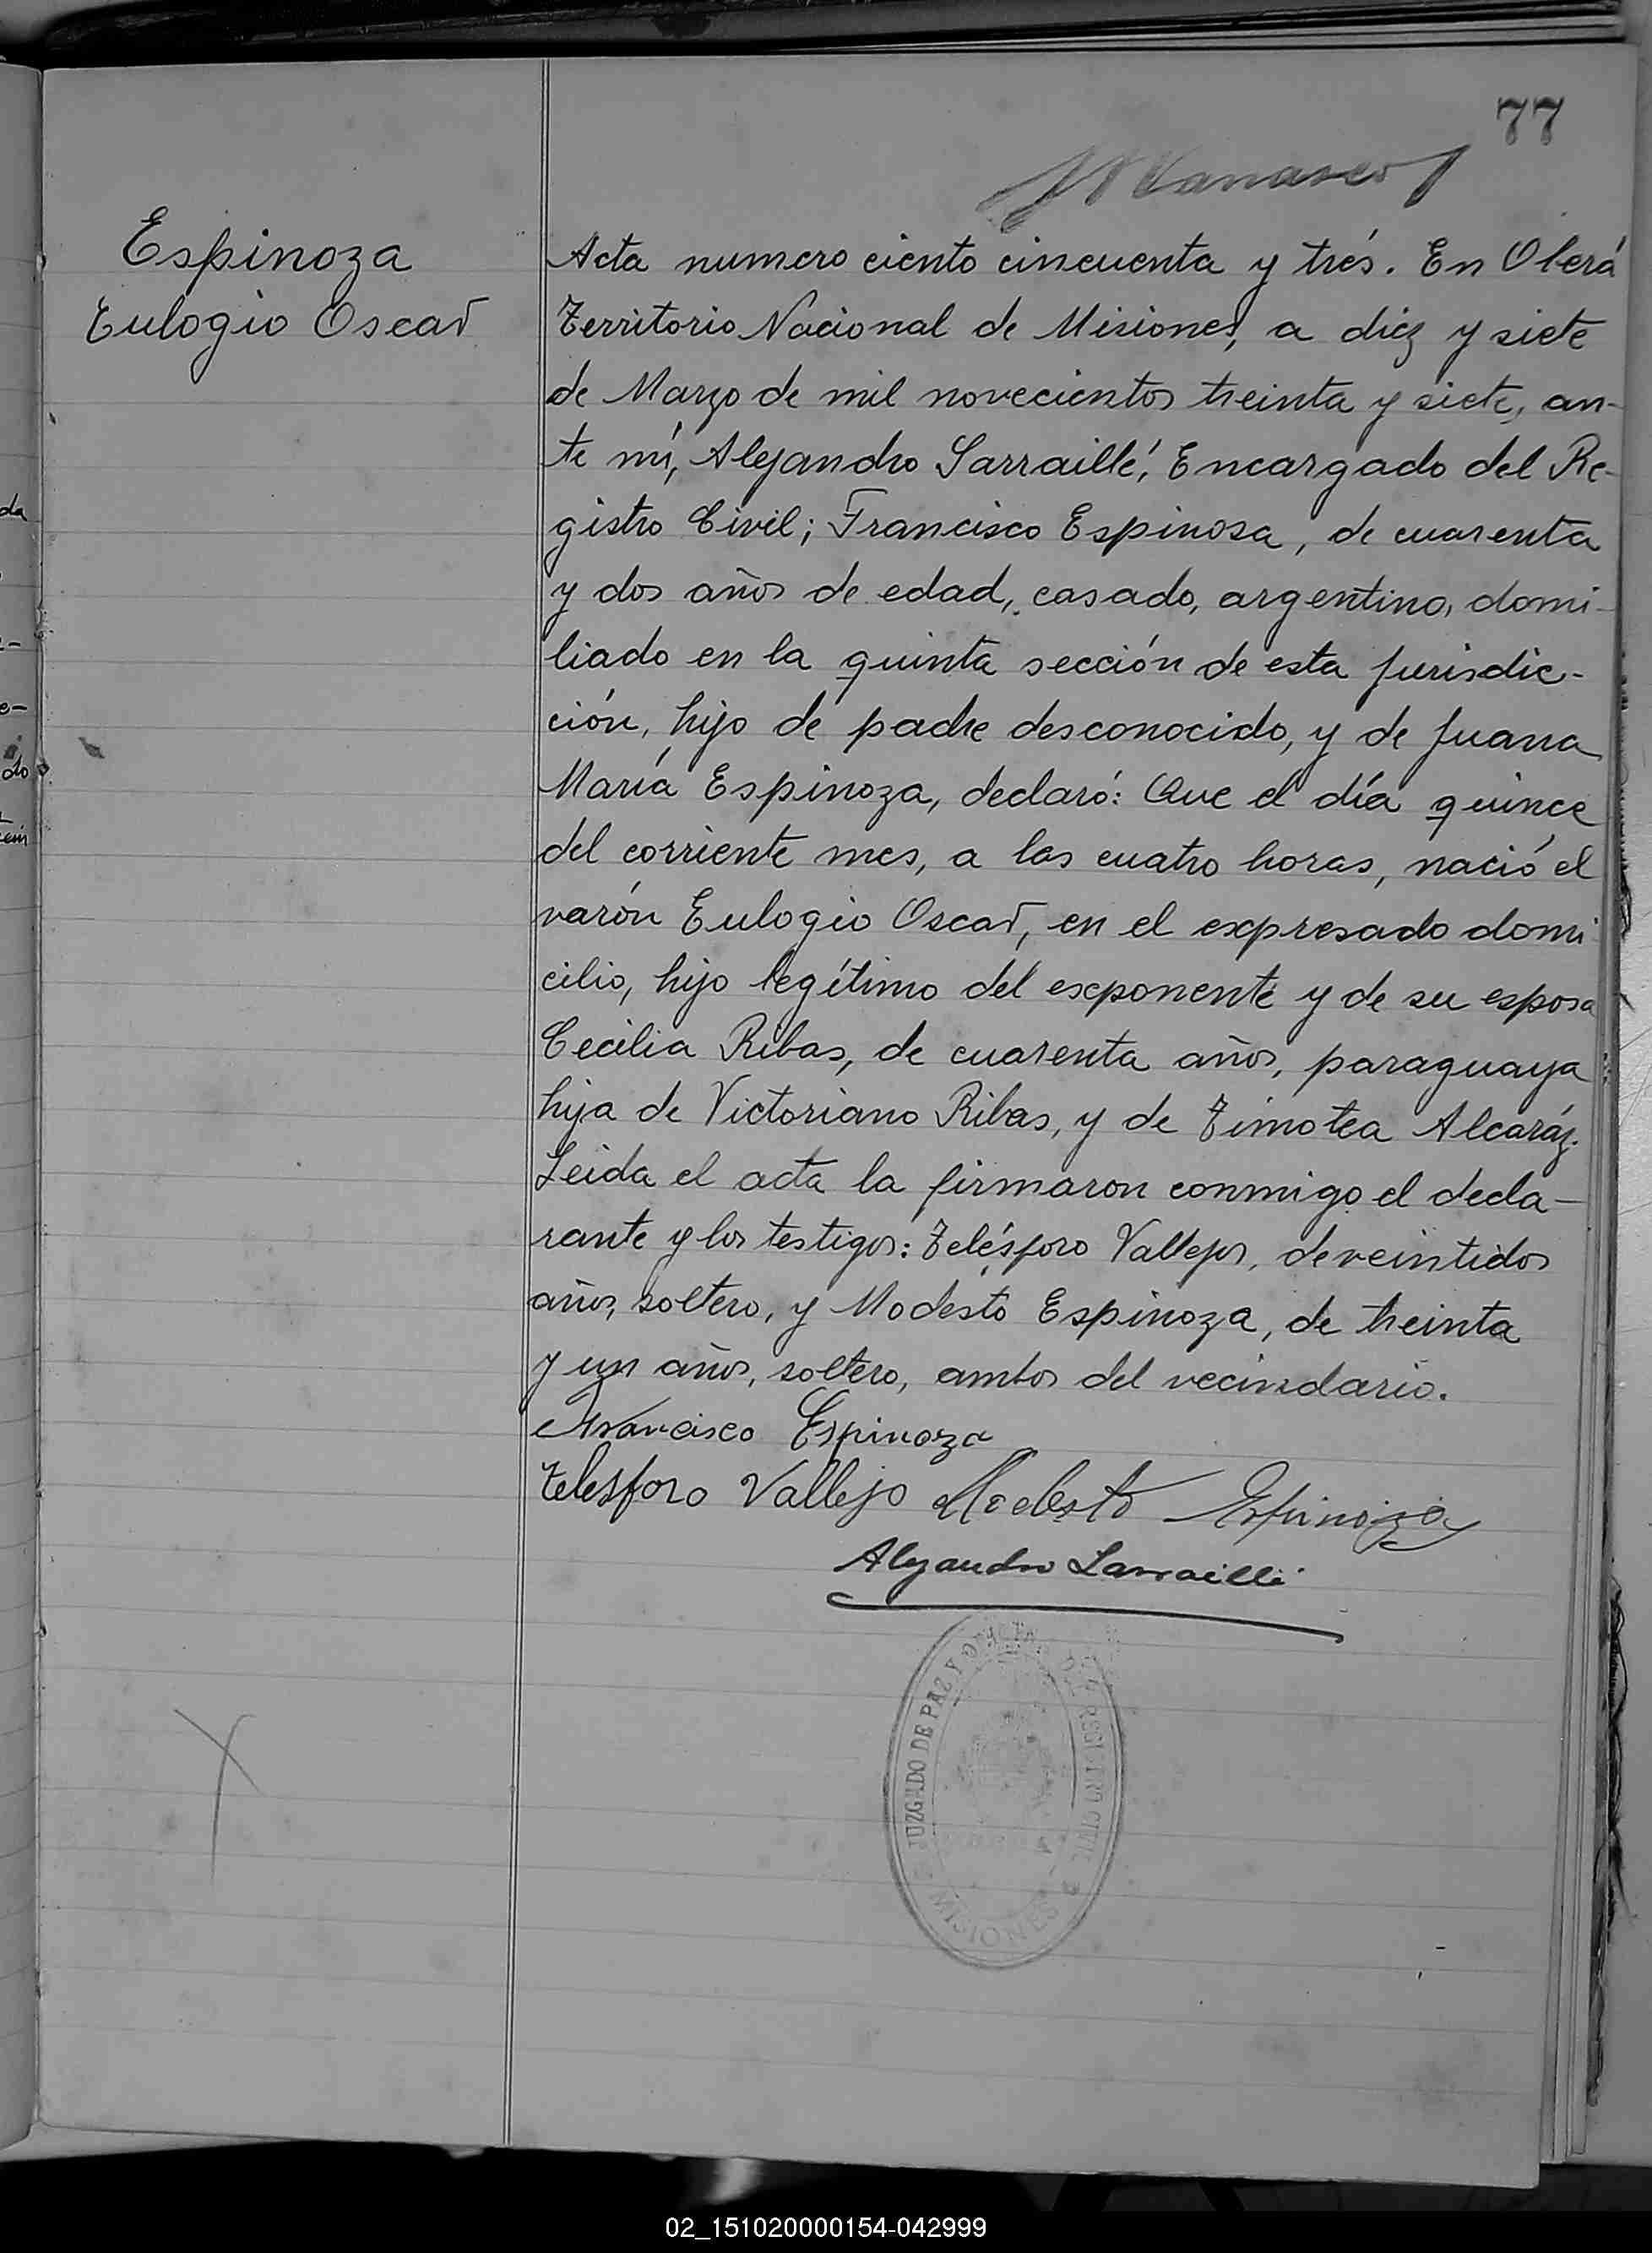 77
Espinoza
Eulogio Oscar
Acta numero ciento cincuenta y trés. En Oberá
Territorio Nacional de Misiones, a diez y siete
de Marzo de mil novecientos treinta y siete, an-
te mí, Alejandro Larraillé, Encargado del Re-
gistro Civil; Francisco Espinosa, de cuarenta
y dos años de edad, casado, argentino, domi-
liado en la quinta sección de esta jurisdic-
ción, hijo de padre desconocido, y de Juana
María Espinoza, declaró: Que el día quince
del corriente mes, a las cuatro horas, nació el
varón Eulogio Oscar, en el expresado domi
cilio, hijo legítimo del exponente y de su esposa
Cecilia Ribas, de cuarenta años, paraguaya
hija de Victoriano Ribas, y de Timotea Alcaráz.
Leida el acta la firmaron conmigo el decla-
rante y los testigos: Telésforo Vallejos, de veintidos
años, soltero, y Modesto Espinoza, de treinta
y un años, soltero, ambos del vecindario.
Francisco Espinoza
Telesforo Vallejo Modesto Espinoza
Alejandro Larraillé
JUZGADO DE PAZ Y REGISTRO CIVIL
MISIONES
da
do
02_151020000154-042999